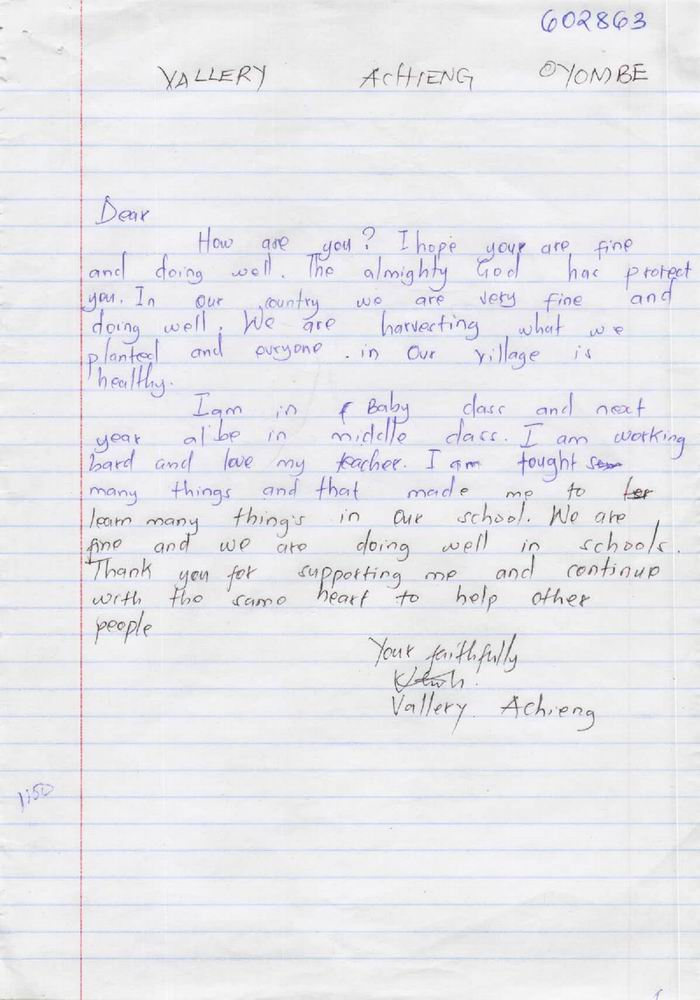 602863
VALLERY ACHIENG OYOMBE
Dear
How are you? I hope your are fine
and doing well. The almighty God has protect
you. In our country we are very fine and
doing well. We are harvesting what we
planted and everyone . in our village is
healthy.
I am in Baby class and next
year al be in middle class. I am working
hard and love my teacher. I am tought
many things and that made me to
learn many thing's in our school. We are
fine and we are doing well in schools.
Thank you for supporting me and continue
with the same heart to help other
people
Your faithfully
Vallery Achieng